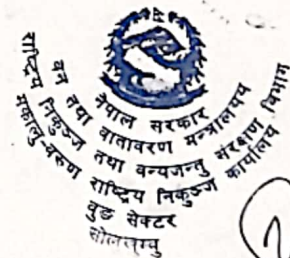 नेपाल सरकार
वन तथा वातावरण मन्त्रालय
राष्ट्रिय निकुञ्ज तथा वन्यजन्तु संरक्षण विभाग
मकालु-वरुण राष्ट्रिय निकुञ्ज कार्यालय
वुङ सेक्टर
सोलुखुम्बु